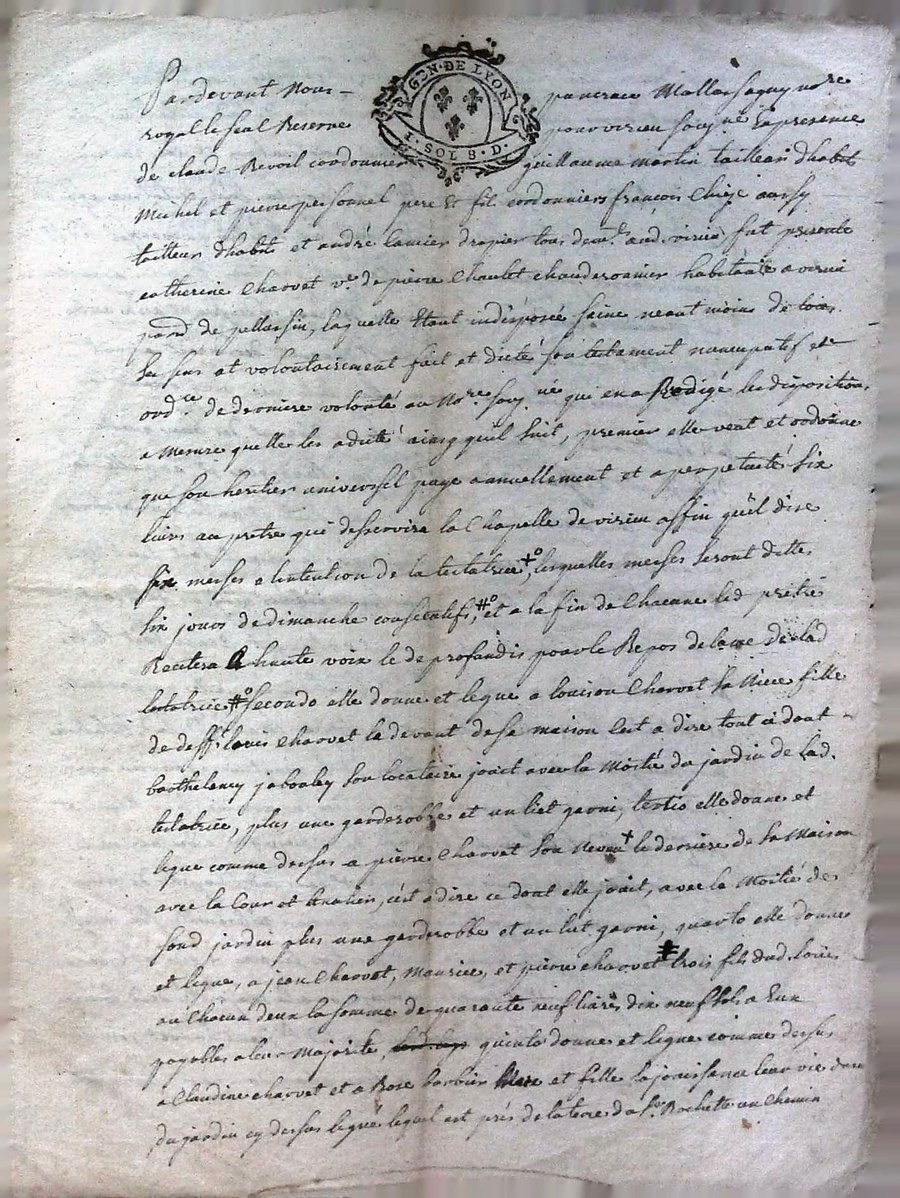 GEN · DE LYON
1 · SOL 8 · D ·
Pardevant Nous – pancrace Mallassagny no.re
royal le seul Reserve pour virieu sousig.né En presence
de claude Revoil cordonnier guillaume martin tailleur dhabit
Michel et pierre personnel pere Et fil cordonniers françois aussy
tailleur dhabit et andré lamier drapier tous dem.t aud. virieu fut presente
catherine Charvet v.e de pierre Chaulet chauderonier habitante a virieu
paroi. de pellussin, laquelle Etant indisposée saine neant moins de tous
ses sens at volontairement fait et dicté son testament nuncupatif et
ord.ce de derniere volonté au No.re sousig.né qui en a Redigé les dispositions
a mesure quelle les a dicté ainsy quil suit, premier elle veut et ordonne
que son heritier universel paye annuellement et a perpetuité six
livres au pretre qui desservira la Chapelle de virieu affin qu'il dise
six messes a lintention de la testatrice +°, lesquelles messes seront dittes
six jours de dimanche consecutifs, #° et a la fin de Chacune led. prêtre
Recitera a haute voix le de profundis pour le Repos de lame de lad
testatrice #° secondo elle donne et legue a louison Charvet sa Niece fille
de deff.t louis charvet le devant de sa maison cest a dire tout ce dont
barthelemy jabouley son locataire jouit avec la Moitié du jardin de Lad.
testatrice, plus une garderobbe et un liet garni, tertio elle donne et
legue comme dessus a pierre Charvet son Neveu + le derriere de sa Maison
avec la Cour et, c'est a dire ce dont elle jouit, avec la Moitié de
sond. jardin plus une garderobbe et un liet garni, quarto elle donne
et legue, a jean Charvet, Maurice, et pierre charvet trois fils dud. louis
au Chacun deux la somme de quarante neuf livres dix neuf sols a Eux
payables a leur Majorité, quinto donne et legue comme dessus
a Claudine charvet et a Rose barbier Mere et fille la jouissance leur vie dure
du jardin cy dessus legué lequel est prés de la terre de s.r Rochette un Chemin